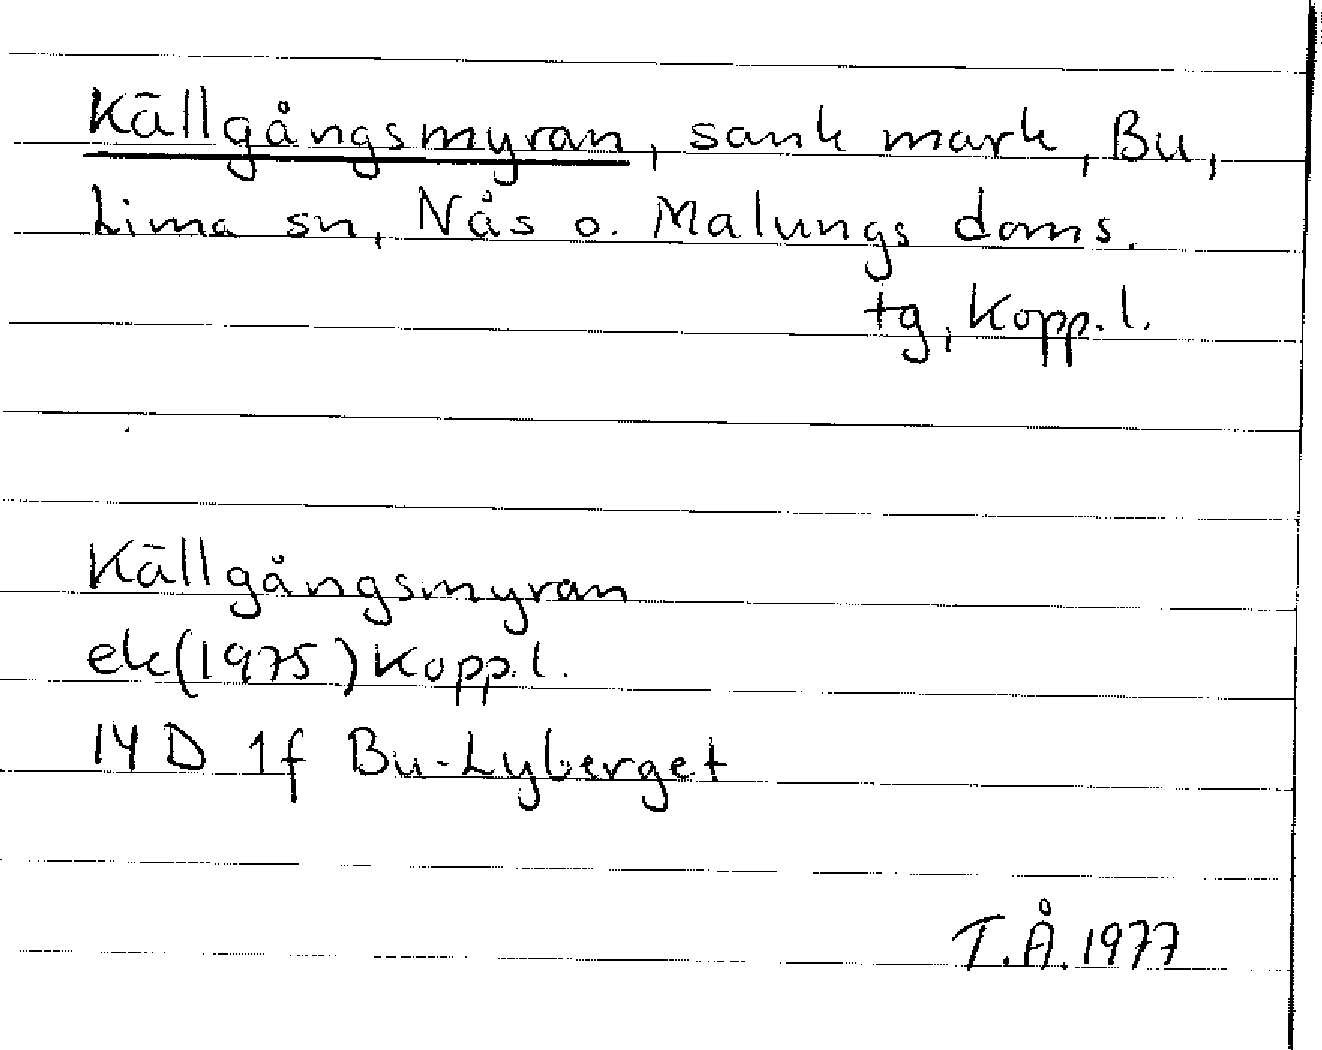 Källgångsmyran, sank mark, Bu,
Lima sn, Nås o. Malungs doms.
tg, Kopp.l.
Källgångsmyran
ek(1975) Kopp.l.
14 D 1f Bu-Lyberget
T.Å. 1977